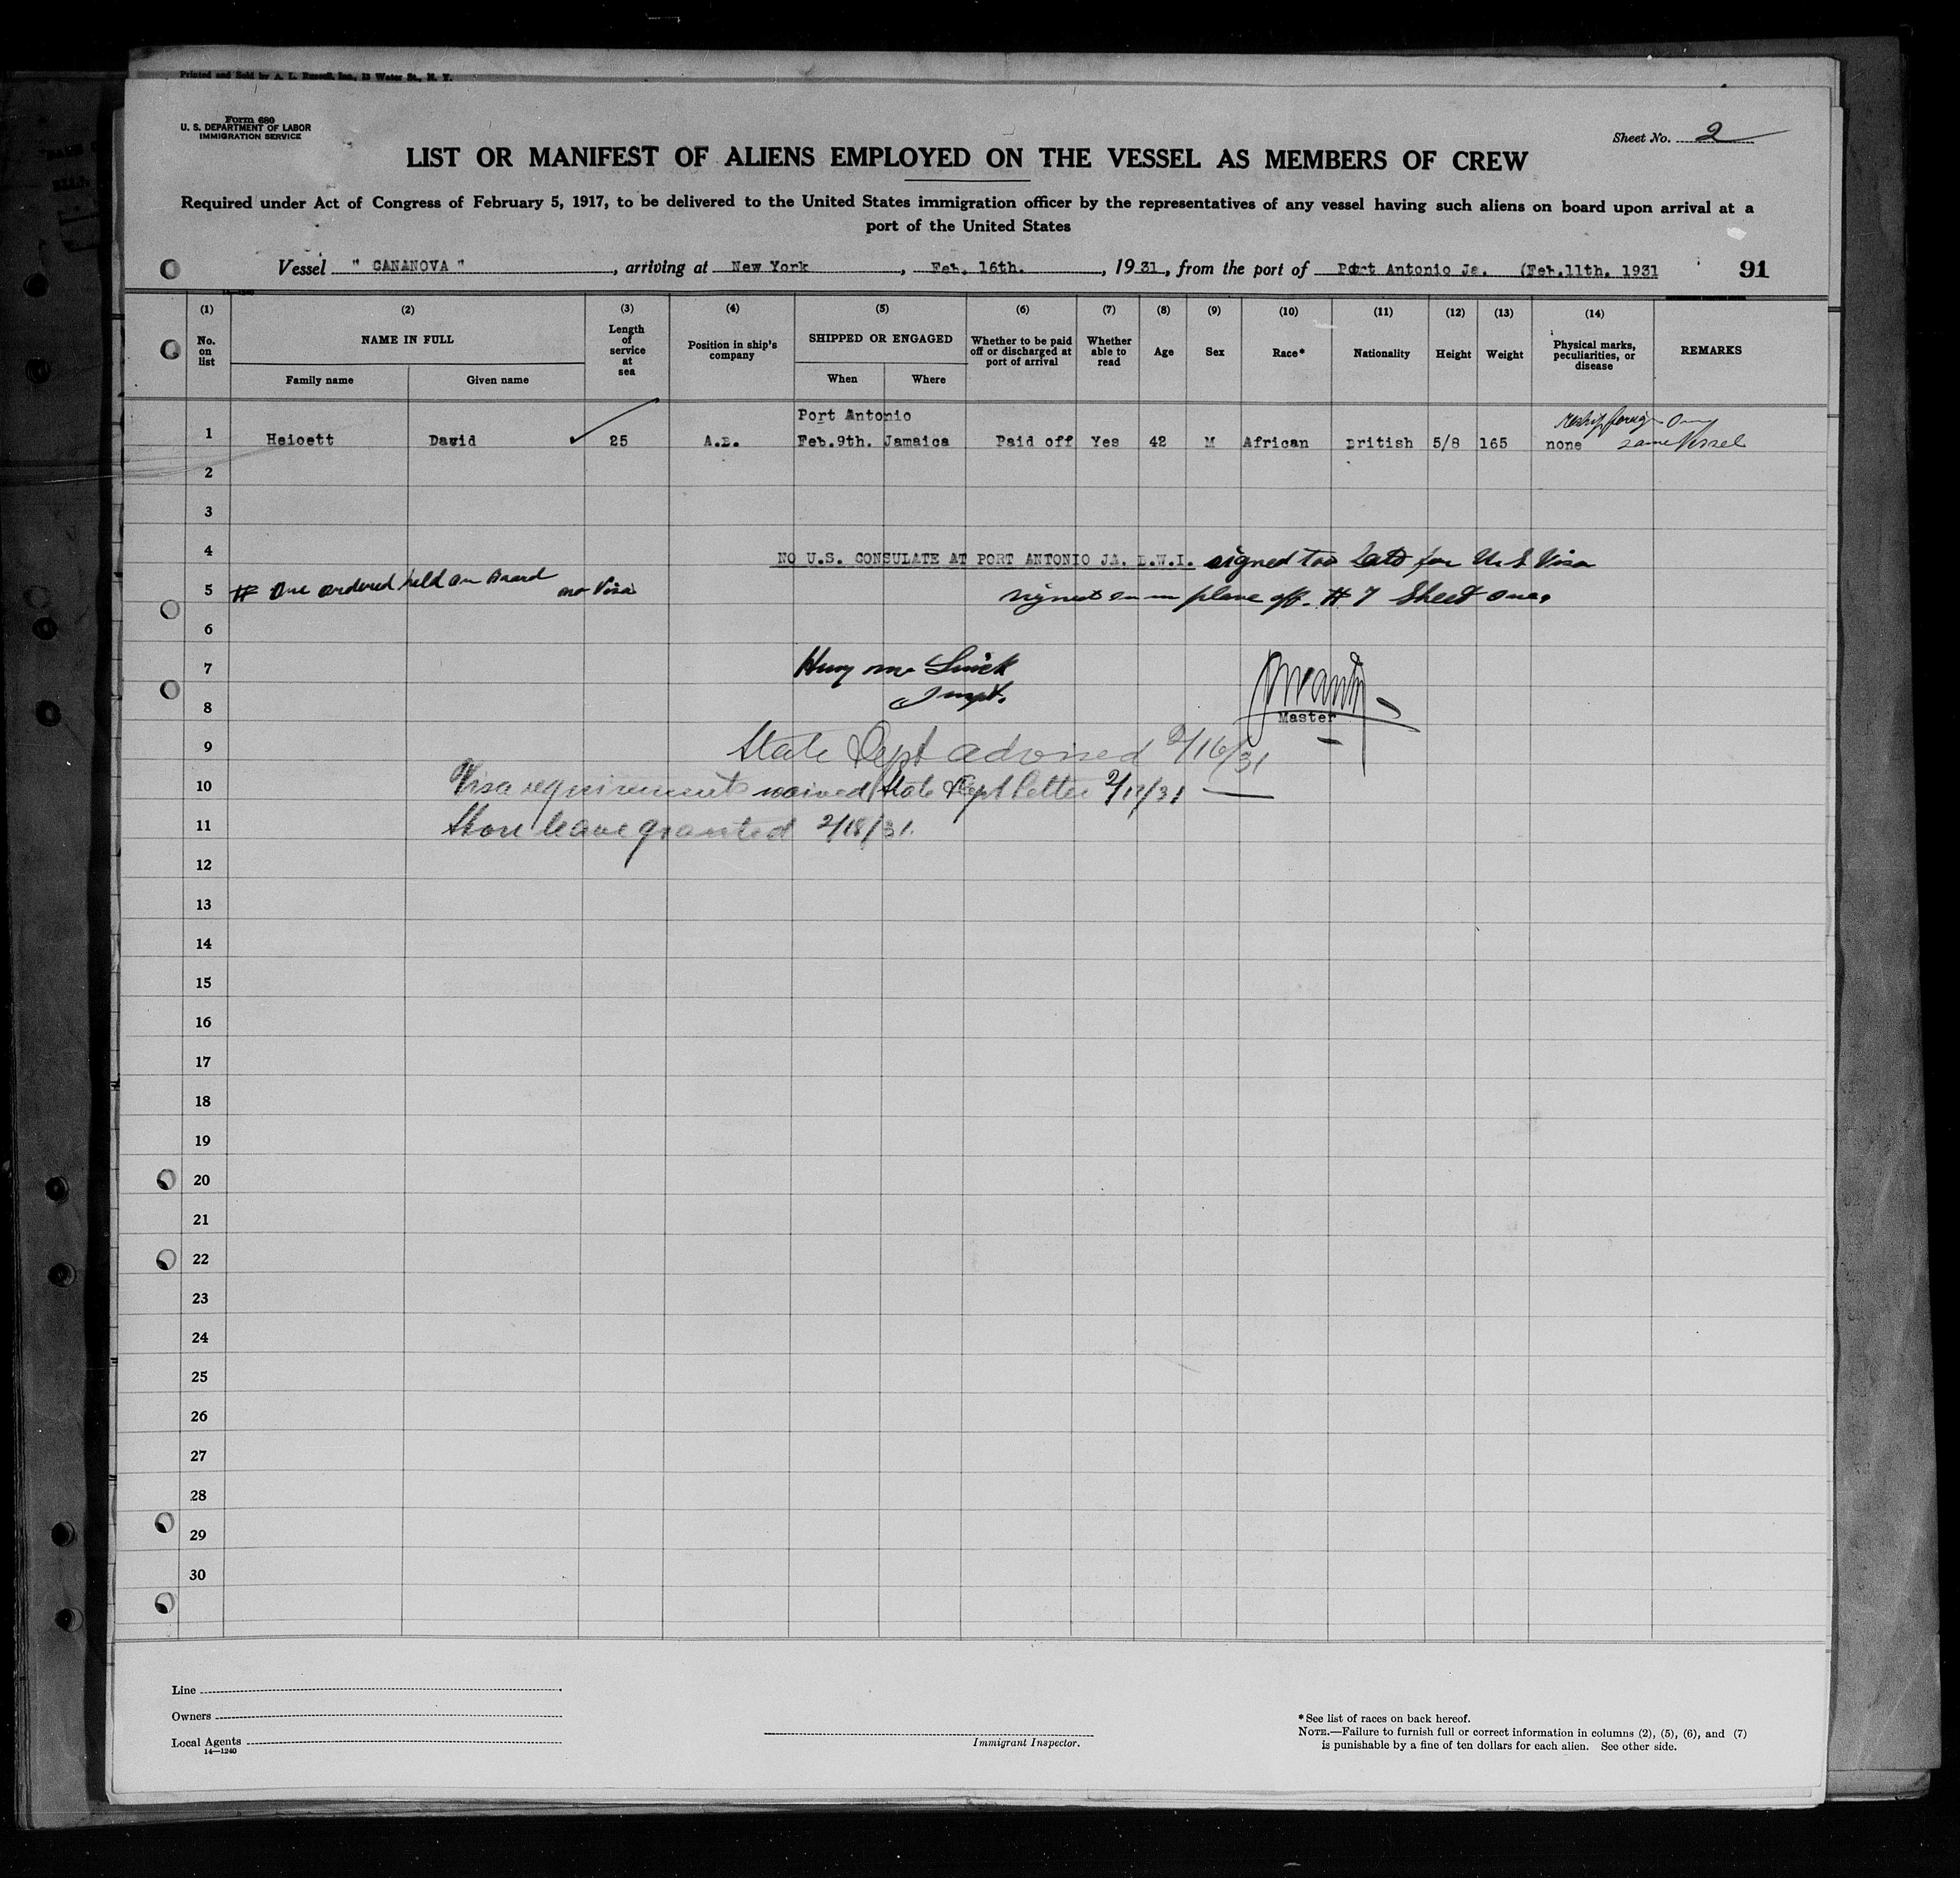 Printed and Sold by A. L. Russell, Inc., 13 Water St., N. Y.
Form 680
U. S. DEPARTMENT OF LABOR
IMMIGRATION SERVICE
Sheet No. 2
LIST OR MANIFEST OF ALIENS EMPLOYED ON THE VESSEL AS MEMBERS OF CREW
Required under Act of Congress of February 5, 1917, to be delivered to the United States immigration officer by the representatives of any vessel having such aliens on board upon arrival at a
port of the United States
Vessel " CANANOVA ", arriving at New York, Feb. 16th., 1931, from the port of Port Antonio Ja. (Feb.11th. 1931
91
14-1240
(1) (2) (3) (4) (5) (6) (7) (8) (9) (10) (11) (12) (13) (14)
No. on list NAME IN FULL Family name Given name Length of service at sea Position in ship's company SHIPPED OR ENGAGED When Where Whether to be paid off or discharged at port of arrival Whether able to read Age Sex Race* Nationality Height Weight Physical marks, peculiarities, or disease REMARKS
Port Antonio
reship foreign on
1 Heicett David 25 A.B. Feb.9th. Jamaica Paid off Yes 42 M African British 5/8 165 none same vessel
2
3
4 NO U.S. CONSULATE AT PORT ANTONIO JA. B.W.I. signed too late for U S Visa
5 # One ordered held on Board no Visa signed on in place of # 7 Sheet one.
6
7
8 Inspt.
Master
9 State Dept advised 2/16/31
10 Visa requirements waived State Dept letter 2/17/31
11 Shore leave granted 2/18/31.
12
13
14
15
16
17
18
19
20
21
22
23
24
25
26
27
28
29
30
Line
Owners
Local Agents
14—1240
Immigrant Inspector.
* See list of races on back hereof.
NOTE.—Failure to furnish full or correct information in columns (2), (5), (6), and (7)
is punishable by a fine of ten dollars for each alien. See other side.